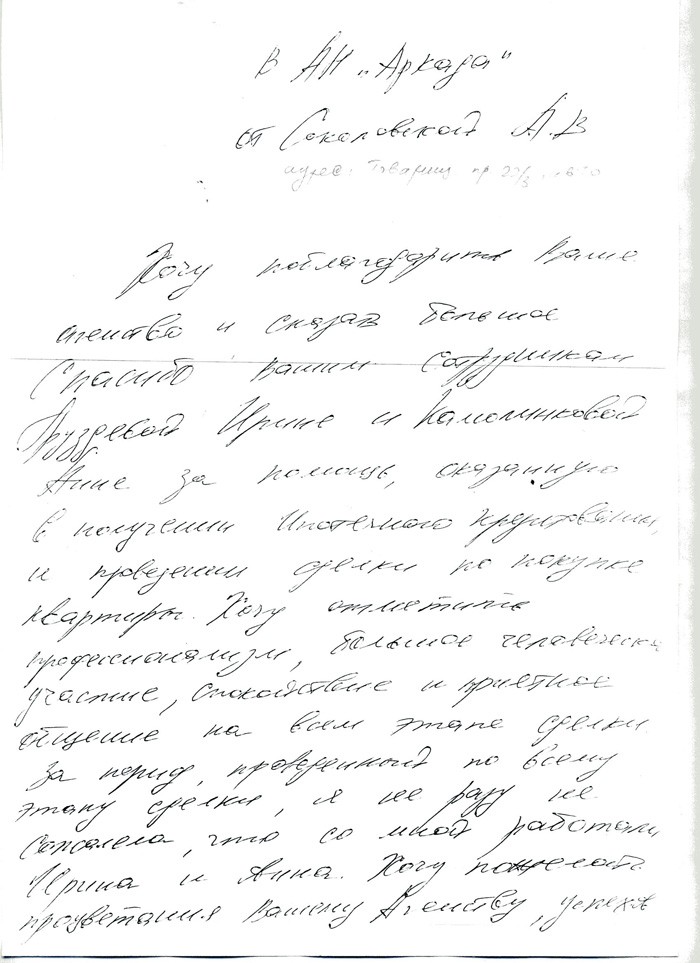 В АН „Аркада"
от Соколовской А.В
адрес: Товарищ пр
Хочу поблагодарить Ваше
агенство и сказав большое
Спасибо вашим сотрудникам
Груздевой Ирине и
Анне за помощь, оказанную
в получении Ипотечного кредитования,
и проведении сделки по покупке
квартиры. Хочу отметить
профессионализм, большое человеческ
участие, спокойствие и приятное
общение на всем этапе сделки
За период, проведенный по всему
этапу сделки, я не разу не
сожалела, что со мной работали
Ирина и Анна. Хочу пожелать
процветания Вашему Агенству, успехов